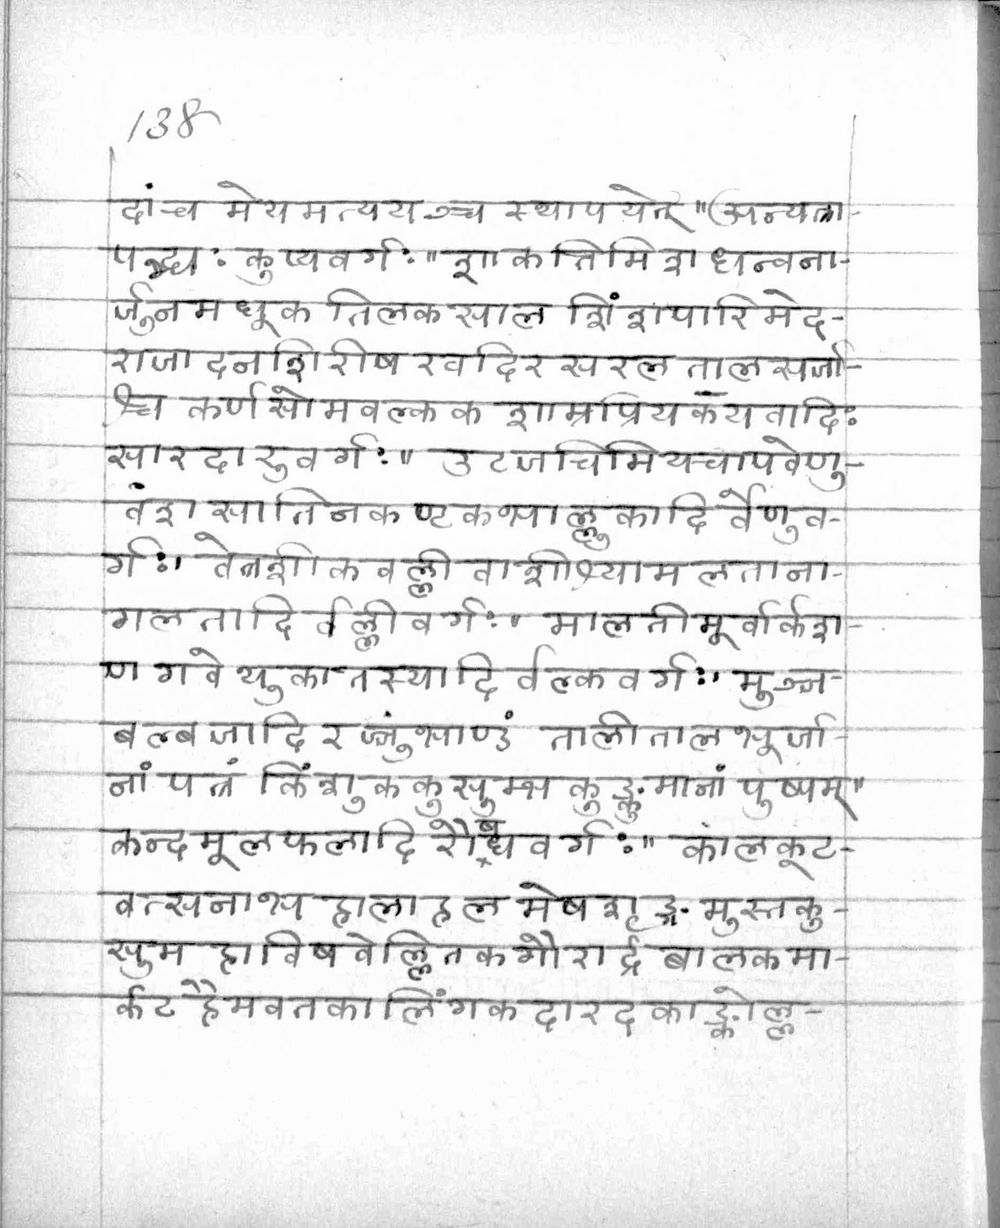 138
दांच मेयमत्ययञ्च स्थापयेत् " (अन्यत्रा-
पद्भ्यः कुप्यवर्गः " शाकतिमिशधन्वना-
र्जुनमधूकतिलकसाल शिंशपारिमेद-
राजादनशिरीषखदिरसरलतालसर्जा-
श्च कर्णसोमवल्ककशाम्रप्रियकॅयवादिः
सारदारुवर्गः " उटजचिमियचापवेणु-
वंशसातिनकण्टकभाल्लूकादिर्वेणुव-
र्गः । वेत्रशीकवल्लीवाशीश्यामलताना-
गलतादिर्वल्लीवर्गः " मालतीमूर्वार्कश-
णगवेथुकातस्यादिर्वल्कवर्गः । मुञ्ज-
बल्बजादि रज्जुंभाण्डं तालीतालभूर्जा-
नां पत्रं किंशुककुसुम्भकुङ्कुमानां पुष्पम् "
कन्दमूलफलादिरौषधवर्गः " कालकूट-
वत्सनाभहालाहलमेषशृङ्गमुस्तकु-
सुमहाविषवेल्लितकगौरार्द्रबालकमा-
र्कटहैमवतकालिंगकदारदकाङ्कोल्ल-